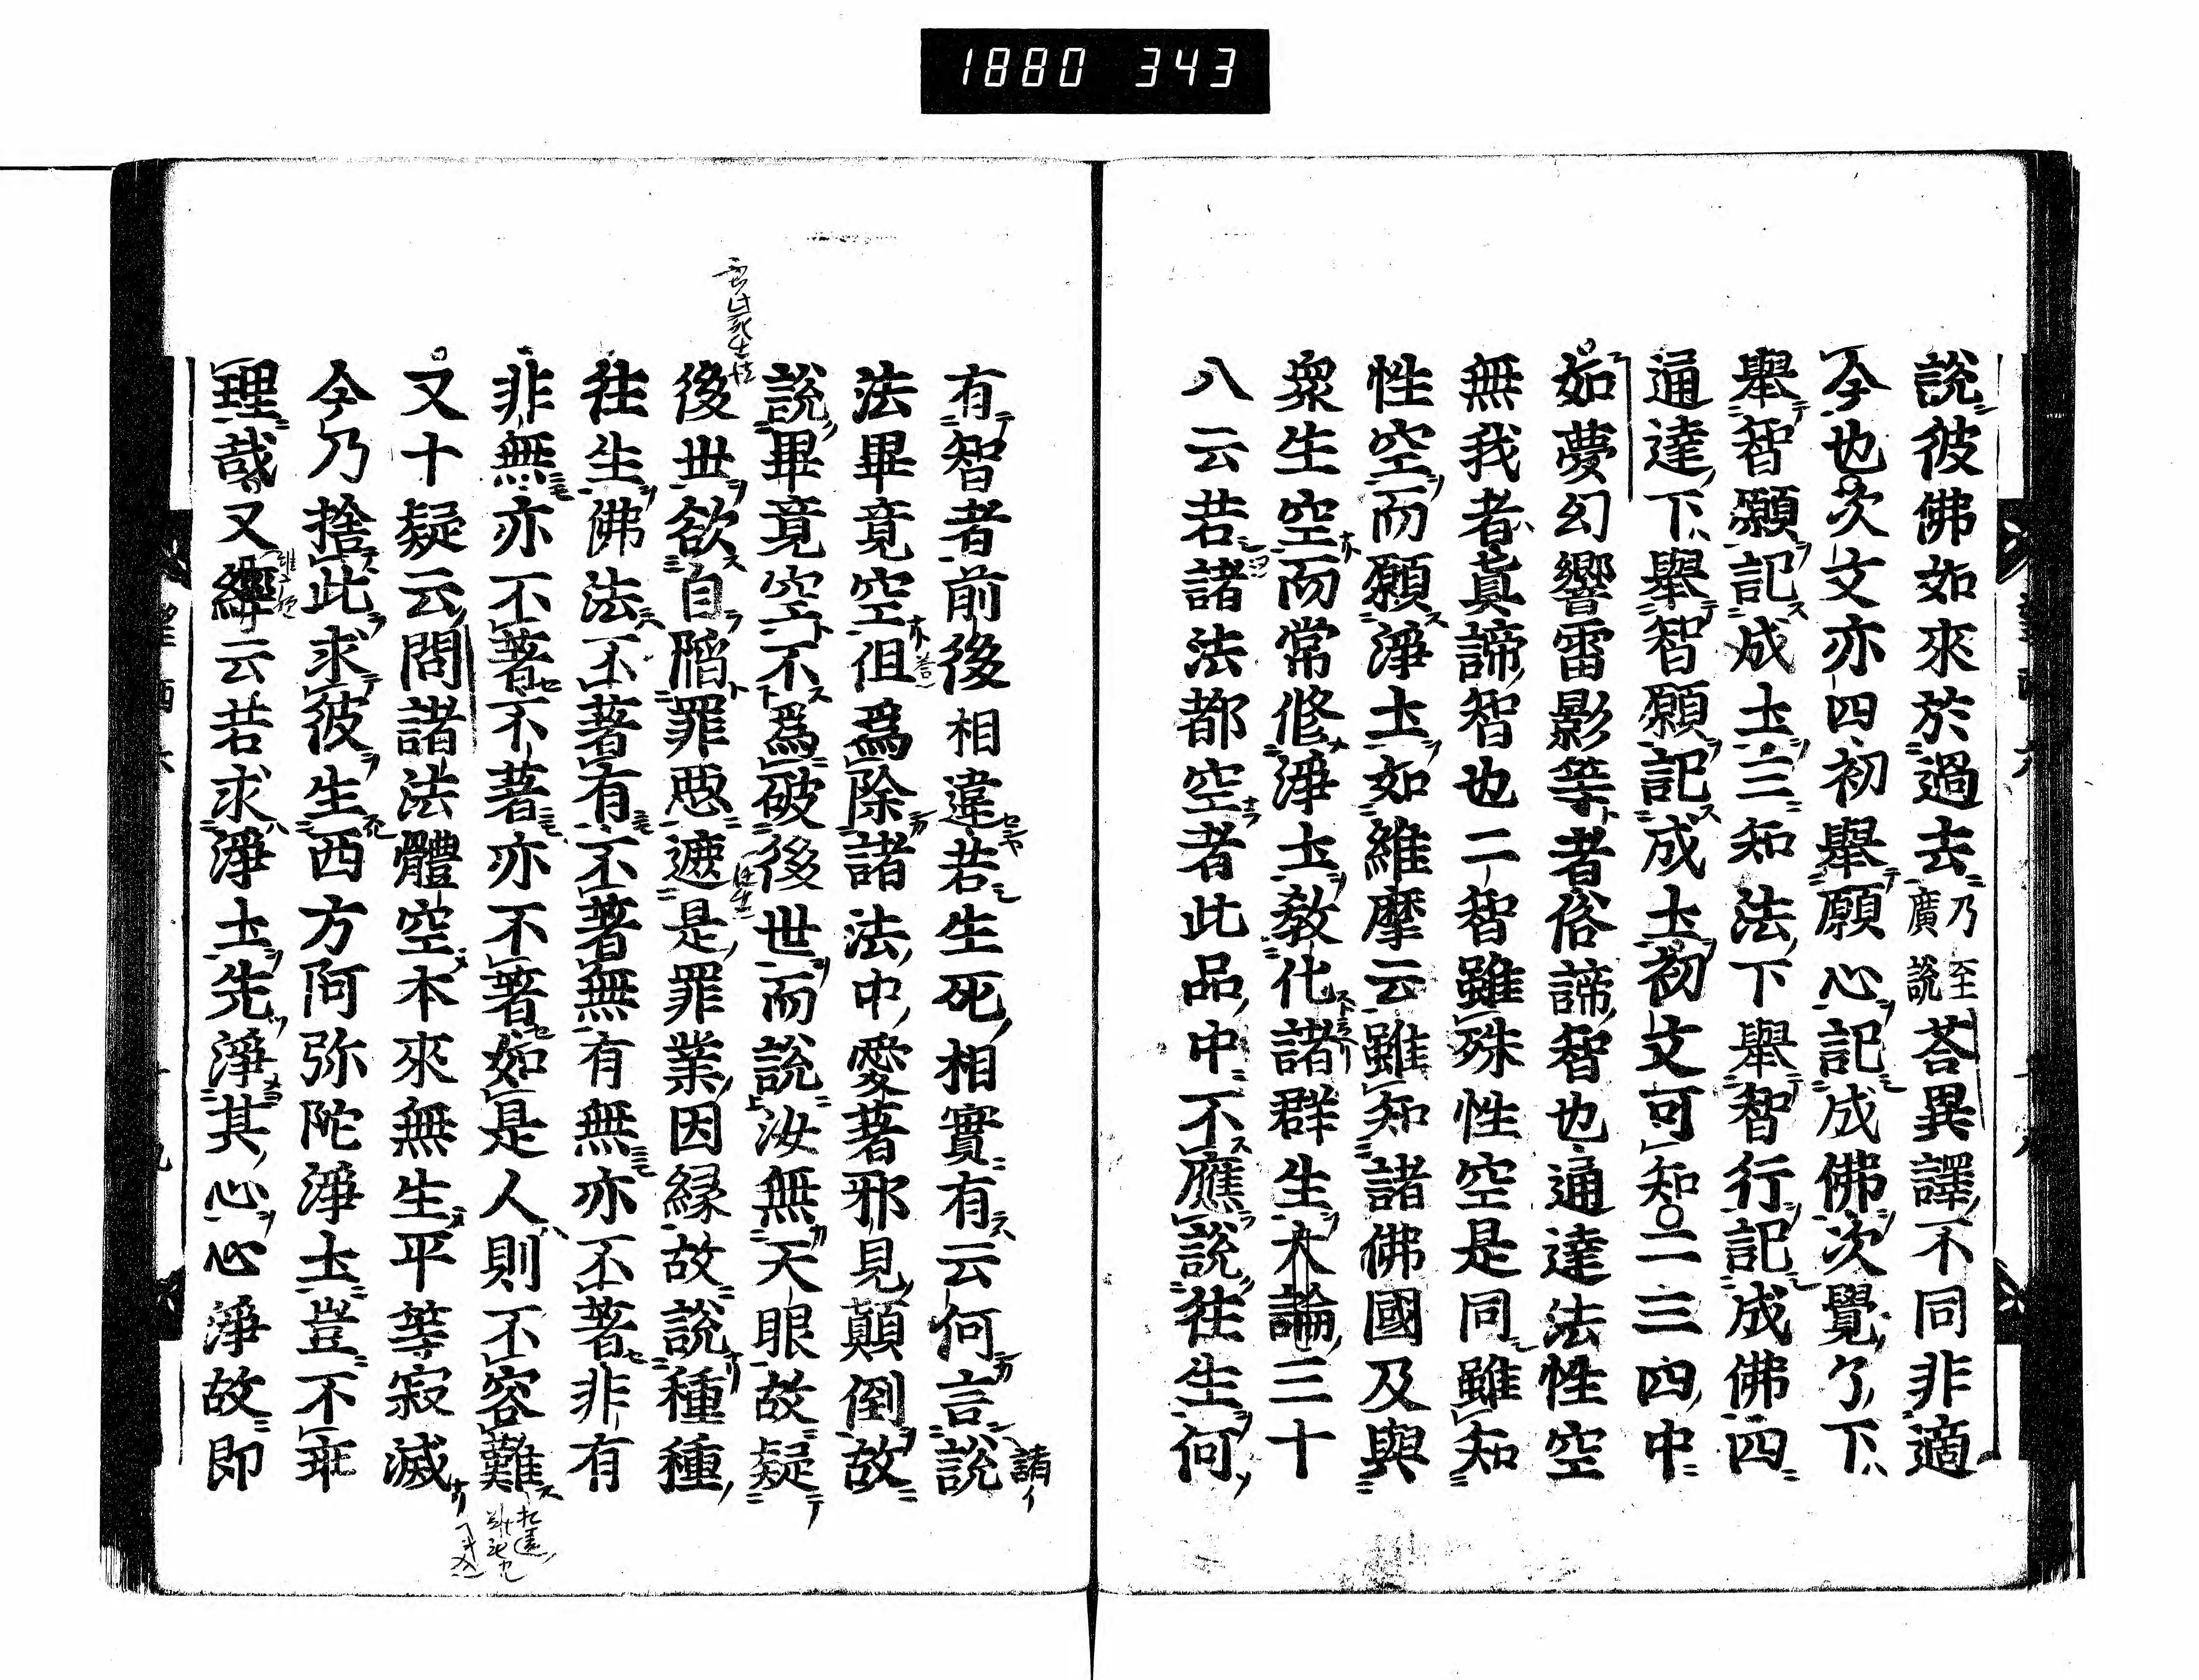 1880 343
說彼佛如來於過去乃至廣說荅異譯不同非適
今也次文亦四初舉願心記成佛次覺了下
舉智願記成土三知法下舉智行記成佛四
通達下舉智願記成土初文可知二三四中
如夢幻響雷影等者俗諦智也通達法性空
無我者真諦智也二智雖殊性空是同雖知
性空而願淨土如維摩云雖知諸佛國及與
衆生空而常修淨土教化諸群生大論三十
八云若諸法都空者此品中不應說往生何
有智者前後相違若生死相實有云何言說
諸イ
法畢竟空但爲除諸法中愛著邪見顛倒故
說畢竟空不爲破後世而說汝無天眼故疑
後世欲自陷罪惡遮是罪業因縁故說種種
往生佛法不著有不著無有無亦不著非有
非無亦不著不著亦不著如是人則不容難
又十疑云問諸法體空本來無生平等寂滅
今乃捨此求彼生西方阿弥陀淨土豈不乖
理哉又經云若求淨土先淨其心心淨故即